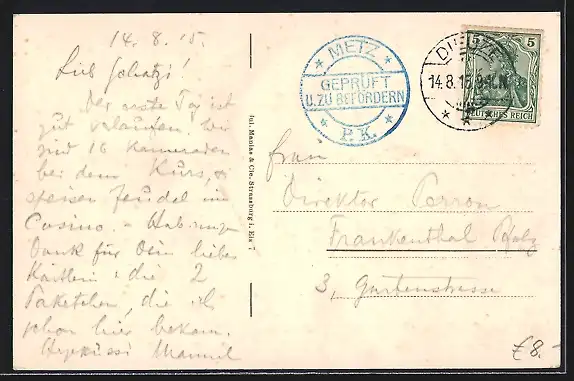 14. 8. 15.
Lieb Schatzi!
Der erste Tag ist
gut verlaufen. Wir
sind 16 Kameraden
bei dem Kurs, &
speisen feudal im
Casino. - Hab
Dank für Dein liebes
Kärtlein & die 2
Paketchen, die ich
schon hier bekam.
Manuel
Jul. Manias & Cie., Strassburg i. Els 7
METZ
GEPRÜFT
U. ZU BEFÖRDERN
P. K.
DIEUZE
14.8.15
5 5
DEUTSCHES REICH
Frau
Direktor Perron
Frankenthal Pfalz
3, Gartenstrasse
£8.-